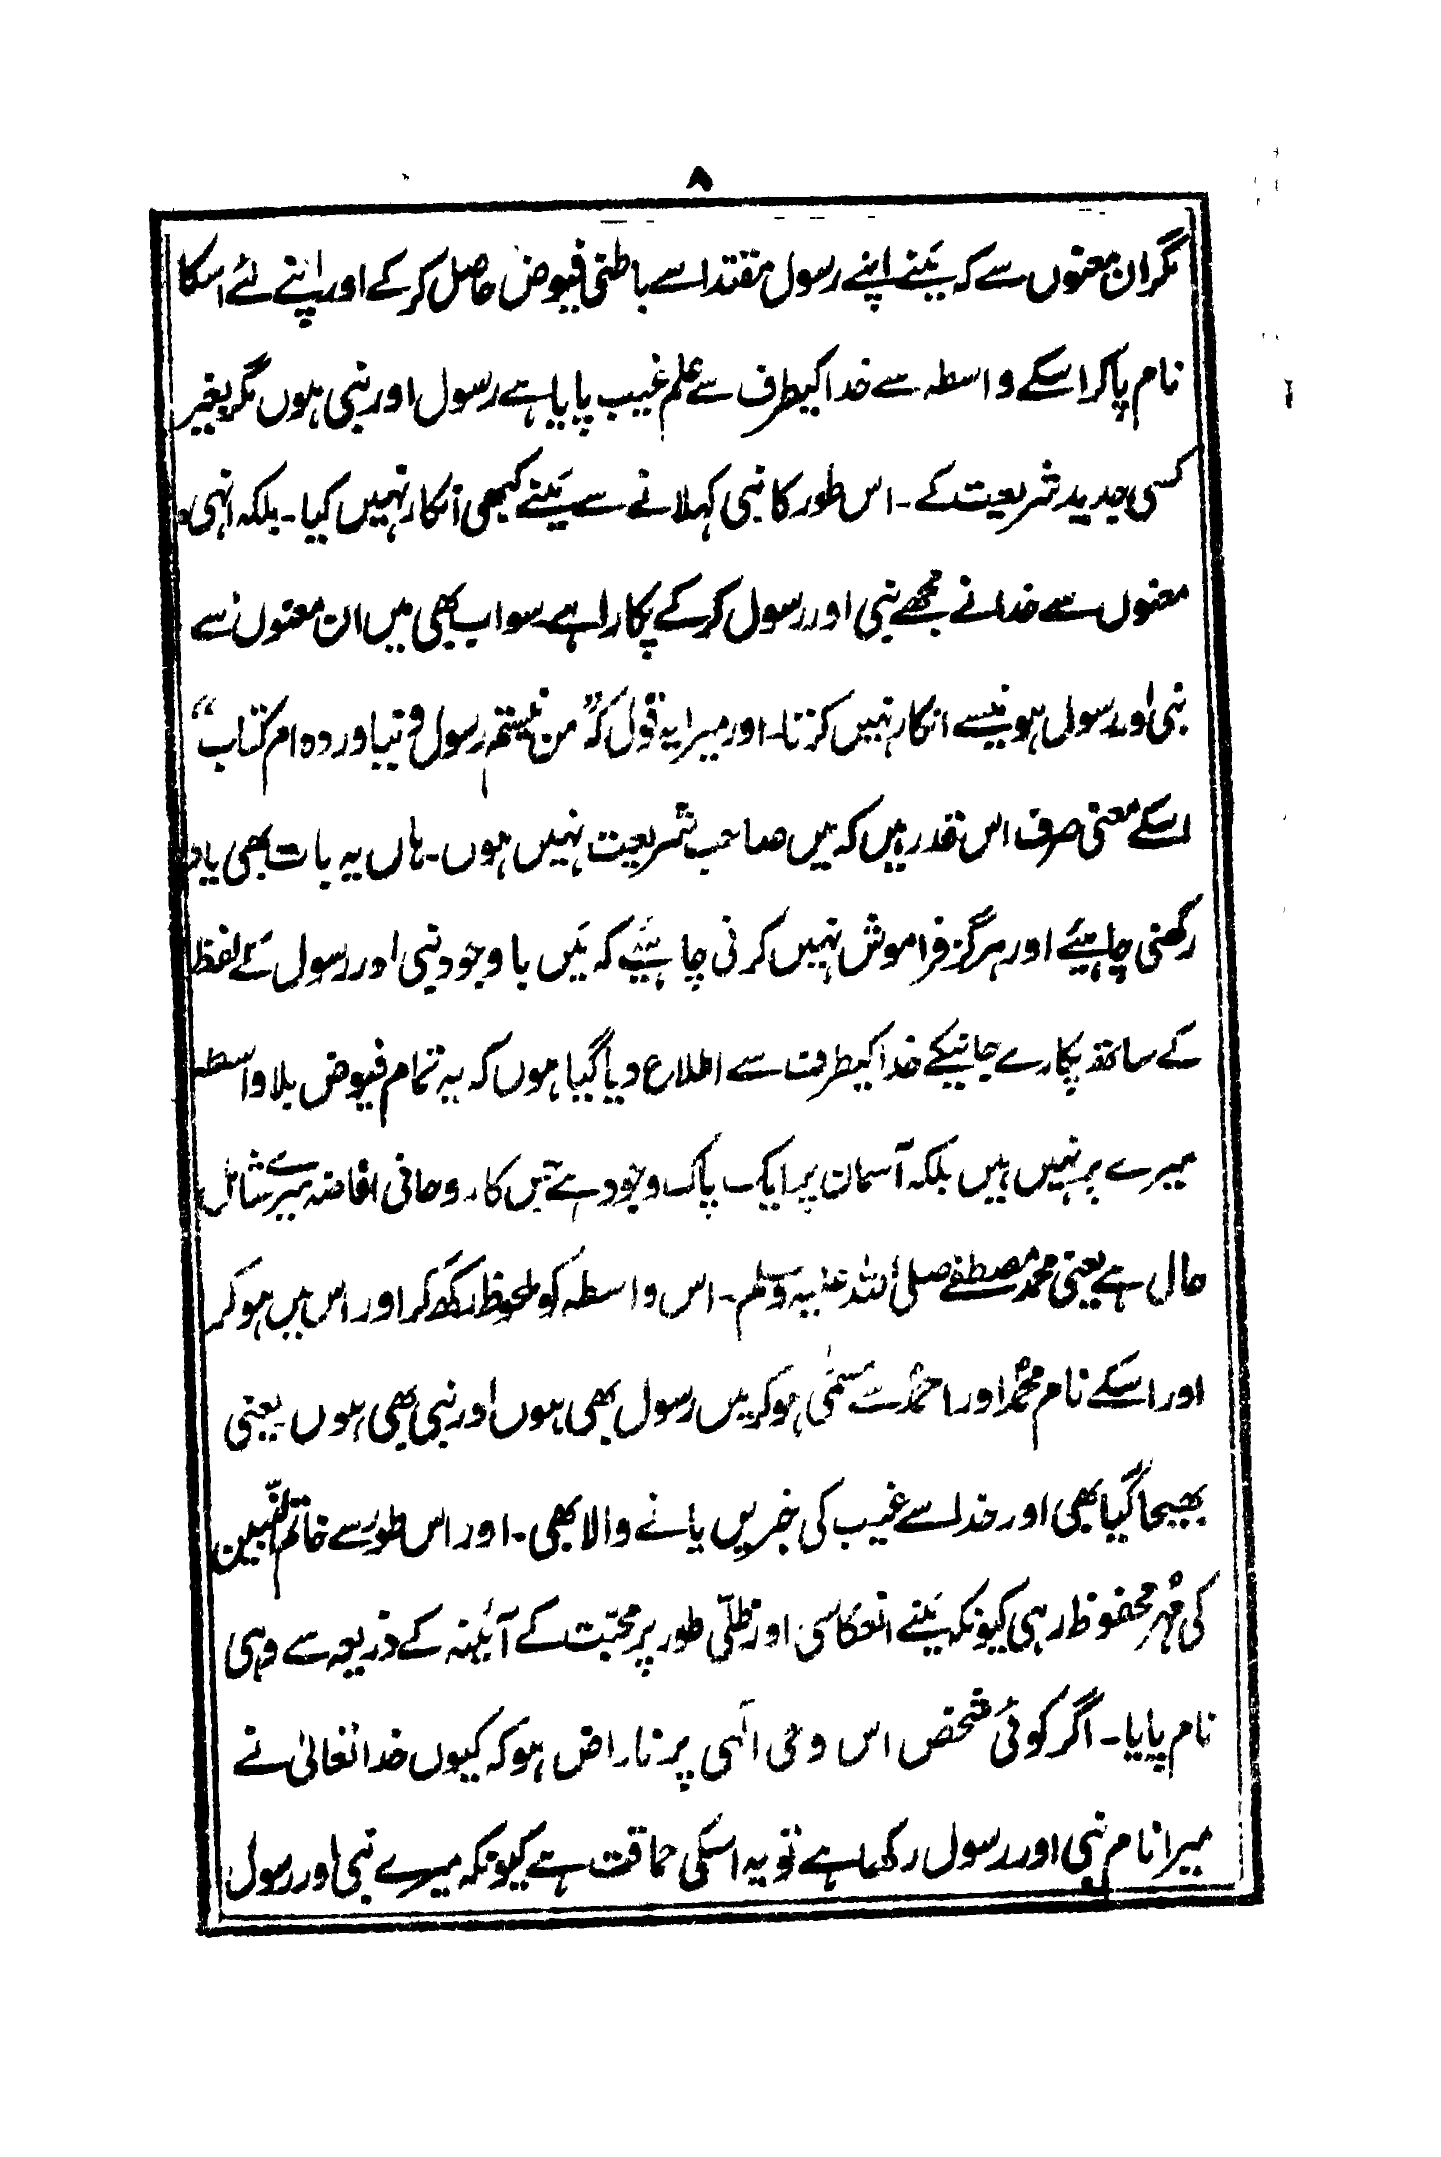 ۸
مگر ان معنوں سے کہ مَینے اپنے رسول مقتدا سے باطنی فیوض حاصل کر کے اور اپنے لئے اسکا
نام پاکر اسکے واسطہ سے خدا کیطرف سے علم غیب پایا ہے رسول اور نبی ہوں مگر بغیر
کسی جدید شریعت کے ۔ اس طور کا نبی کہلانے سے مَینے کبھی انکار نہیں کیا ۔ بلکہ انہی
معنوں سے خدا نے مجھے نبی اور رسول کر کے پکارا ہے سو اب بھی میں ان معنوں سے
نبی اور رسول ہونیسے انکار نہیں کرتا ۔ اور میرا یہ قول کہ ”من نیستم رسول و نیاوردہ ام کتاب“
اسکے معنی صرف اس قدر ہیں کہ میں صاحب شریعت نہیں ہوں ۔ ہاں یہ بات بھی یاد
رکھنی چاہیئے اور ہرگز فراموش نہیں کرنی چاہیئے کہ مَیں باوجود نبی اور رسول کے لفظ
کے ساتھ پکارے جانیکے خدا کیطرف سے اطلاع دیا گیا ہوں کہ یہ تمام فیوض بلا واسطہ
میرے پر نہیں ہیں بلکہ آسمان پر ایک پاک وجود ہے جس کا روحانی افاضہ میرے شامل
حال ہے یعنی محمد مصطفےٰ صلی اللہ علیہ وسلم ۔ اس واسطہ کو ملحوظ رکھ کر اور اس میں ہو کر
اور اسکے نام محمدؐ اور احمدؐ سے مسمّٰی ہو کر میں رسول بھی ہوں اور نبی بھی ہوں یعنی
بھیجا گیا بھی اور خدا سے غیب کی خبریں پانے والا بھی ۔ اور اس طور سے خاتم النّبیین
کی مُہر محفوظ رہی کیونکہ مَینے انعکاسی اور ظلّی طور پر محبّت کے آئینہ کے ذریعہ سے وہی
نام پایا ۔ اگر کوئی شخص اس وحی الٰہی پر ناراض ہو کہ کیوں خدا تعالیٰ نے
میرا نام نبی اور رسول رکھا ہے تو یہ اسکی حماقت ہے کیونکہ میرے نبی اور رسول